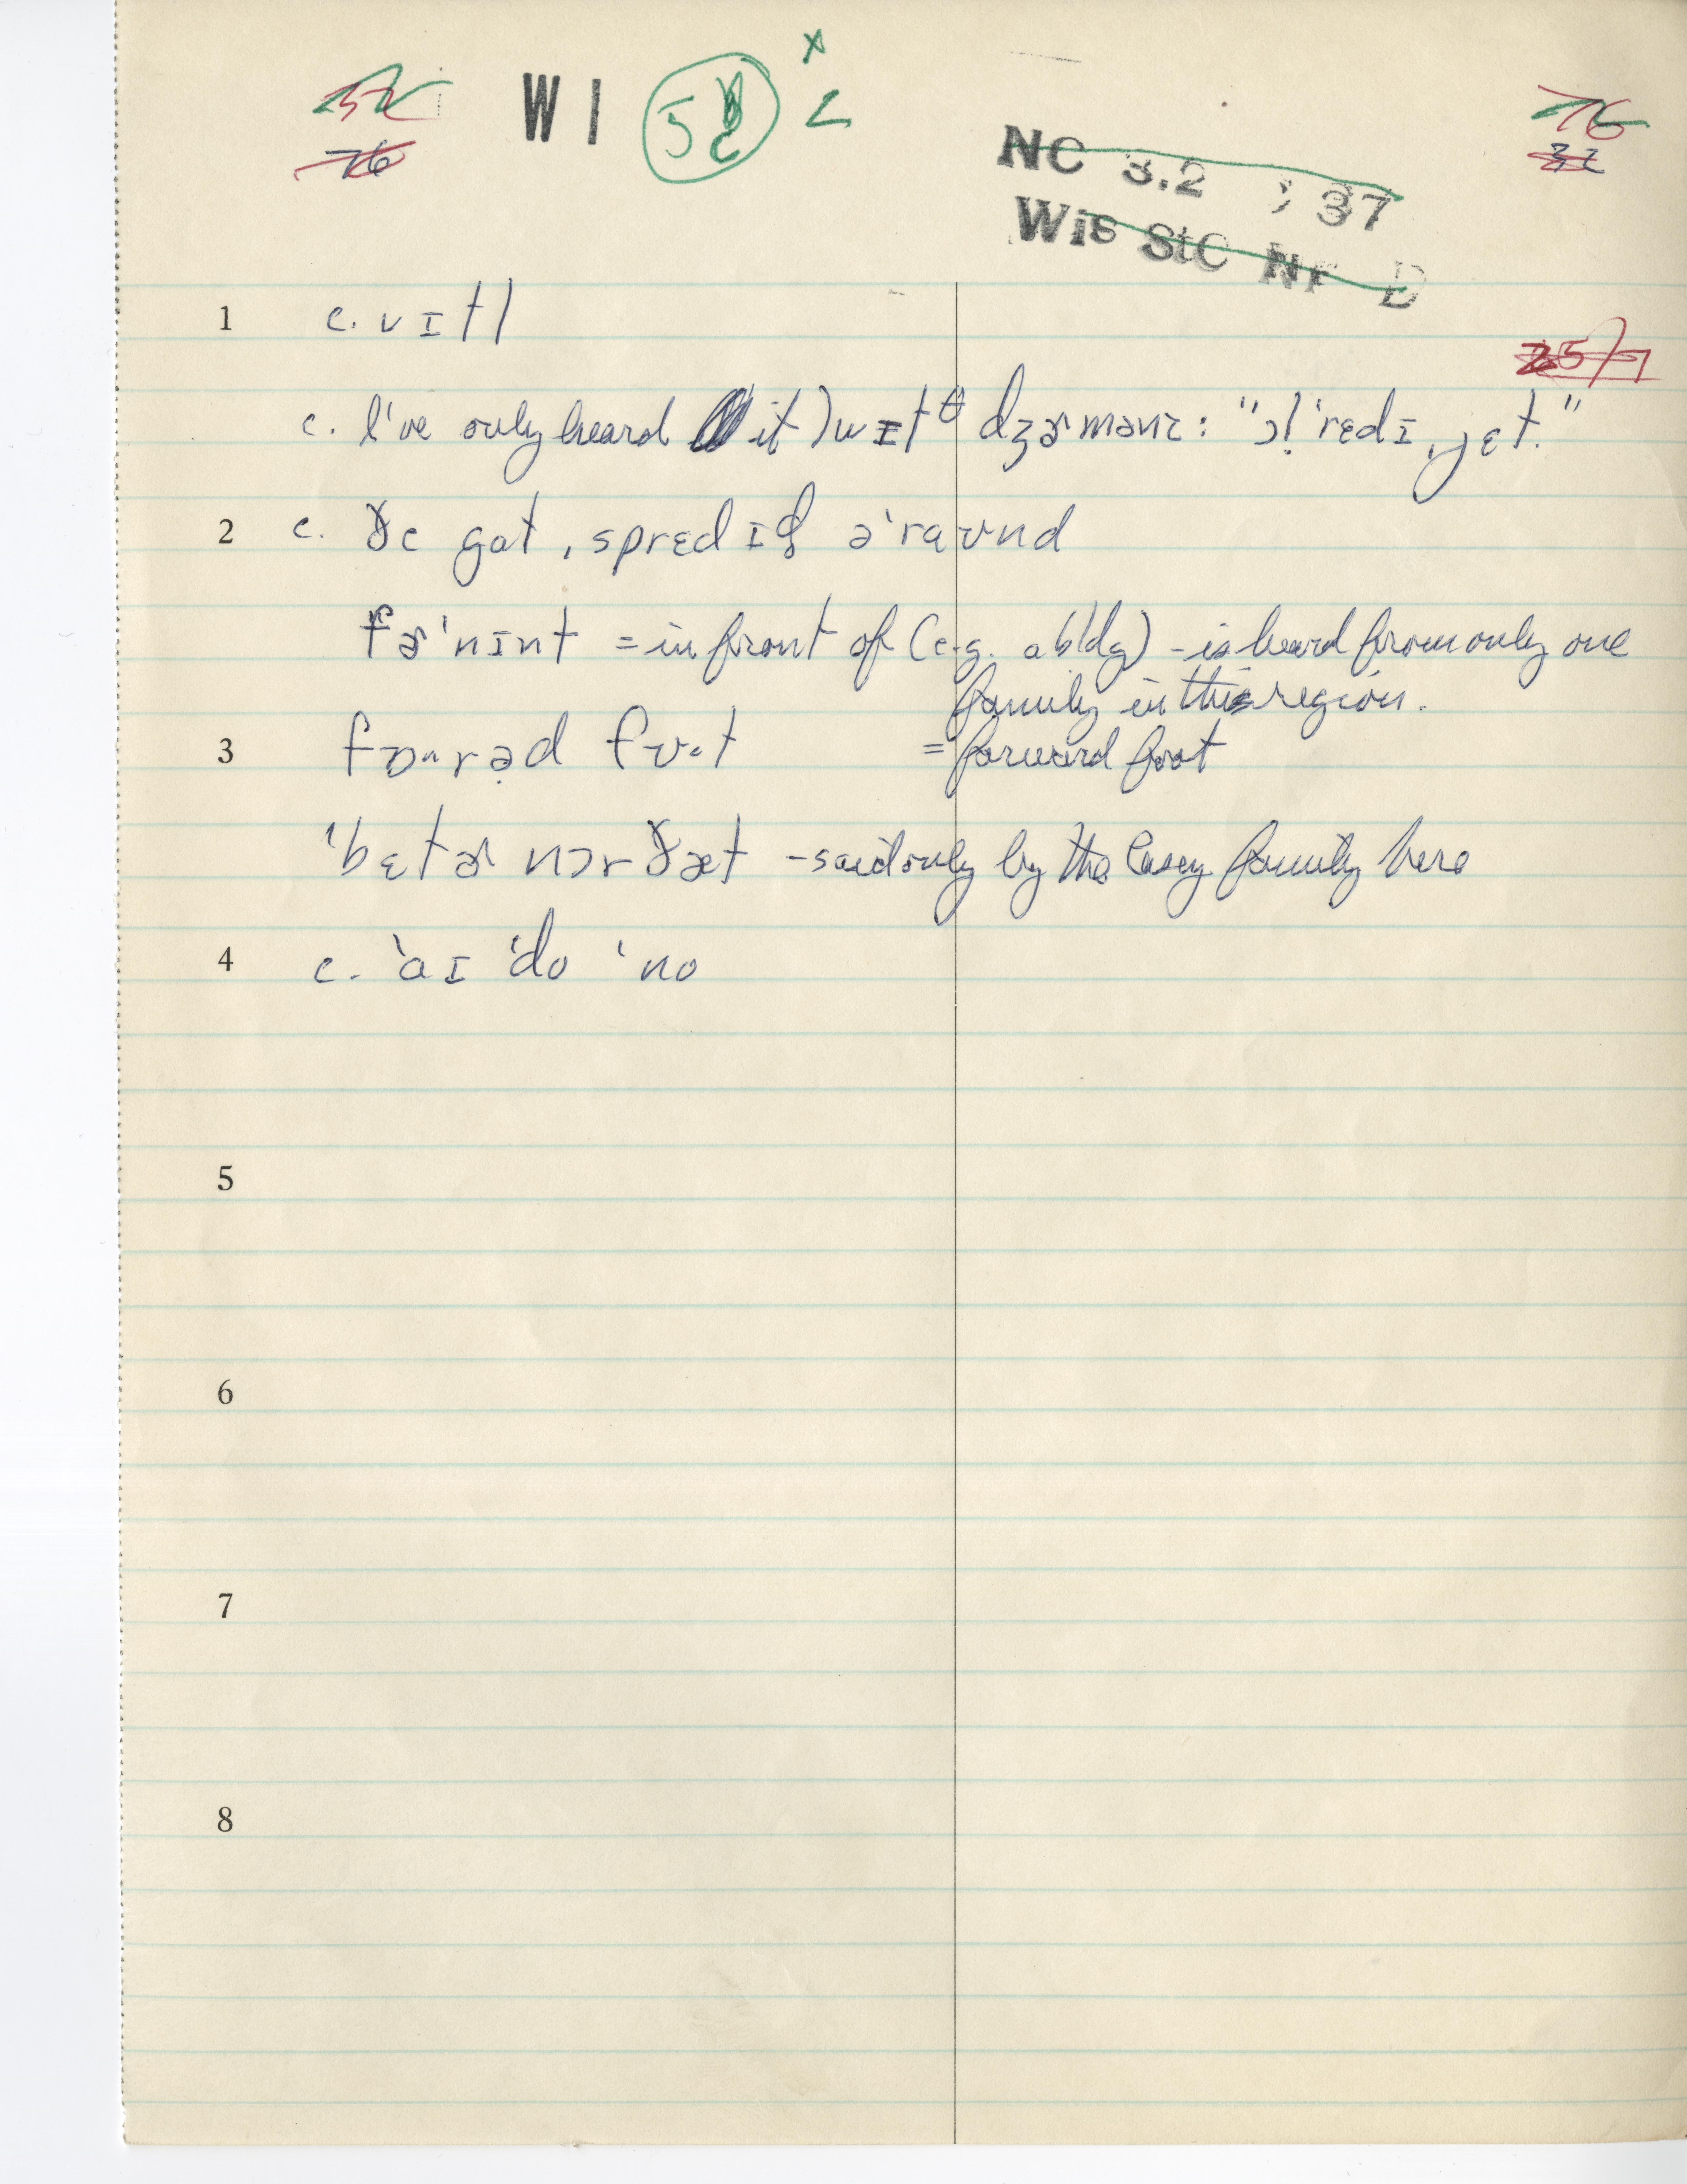 52 WI 52 x 2 76
76 32
NC 3.2 ; 37
Wis StC Nr D
1 c. vɪtl
25/7
c. I've only heard it) wɪtᶿ dʒɚmənz: "ɔl̩ˈrɛdɪ ˌjɛt."
2 c. ðe gɑt ˌsprɛd ɪŋ əˈraʊnd
fɚˈnɪnt = in front of (e.g. a bldg) - is heard from only one
family in this region.
3 fɒrəd fʊt = forward foot
ˈbɛtɚ nɔr ðæt - said only by the Casey family here
4 c. ˈaɪ ˈdo ˈno
5
6
7
8